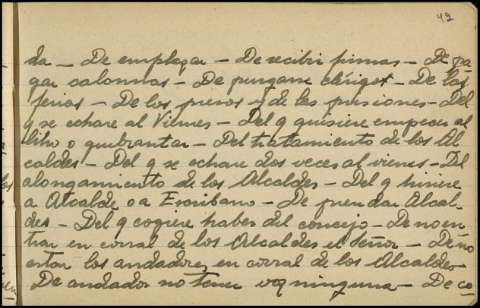 42
da — De emplazar — De recibir firmas — De pa-
gar calonnas — De pungame clérigo — De las
ferias — De los presos y de las prisiones — Del
q se echare al Viernes — Del q quisiere empecer al
libro o quebrantar — Del tratamiento de los Al
caldes — Del q se echare dos veces al viernes — Del
alongamiento de los Alcaldes — Del q hiriere
a Alcalde o a Escribano — De prendar Alcal-
des — Del q cogiere haber del concejo — De no en-
trar en corral de los Alcaldes el señor — De no
estar los andadores, en corral de los Alcaldes —
De andador no tener voz ninguna — De co-